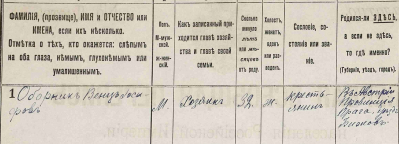 ФАМИЛІЯ, (прозвище), ИМЯ и ОТЧЕСТВО или
ИМЕНА, если ихъ нѣсколько.
Отмѣтка о тѣхъ, кто окажется: слѣпымъ
на оба глаза, нѣмымъ, глухонѣмымъ или
умалишеннымъ.
Полъ
М-мужской.
Ж-женскій.
Какъ записанный при-
ходится главѣ хозяй-
ства и главѣ своей
семьи.
Сколько
минуло
лѣтъ
или мѣ-
сяцевъ
отъ роду.
Холостъ,
женатъ,
вдовъ
или раз-
веденъ.
Сословіе, со-
стояніе или зва-
ніе.
Родился-ли ЗДѢСЬ,
а если не здѣсь,
то гдѣ именно?
(Губернія, уѣздъ, городъ).
1 Оборникъ
М.
Хозяинъ
32
Ж.
кресть-
янинъ
Австріи